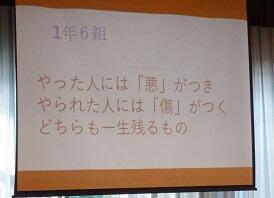 1年6組
やった人には「悪」がつき
やられた人には「傷」がつく
どちらも一生残るもの